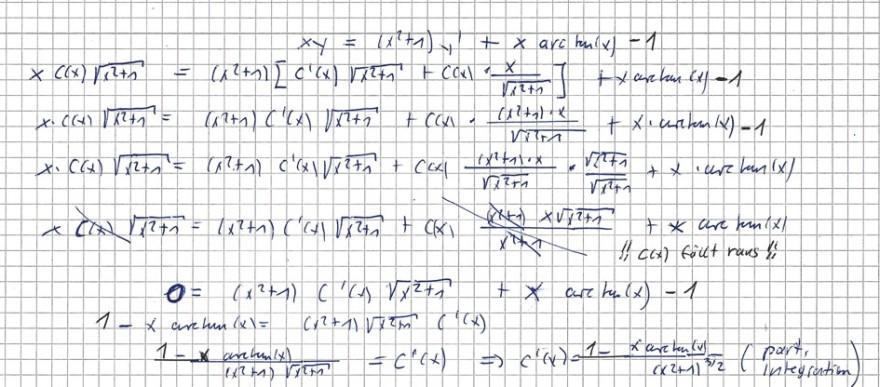 xy = (x²+1) y' + x arctan(x) - 1
x C(x) √(x²+1) = (x²+1) [ C'(x) √(x²+1) + C(x) · x/√(x²+1) ] + x arctan(x) - 1
x · C(x) √(x²+1) = (x²+1) C'(x) √(x²+1) + C(x) · (x²+1)·x/√(x²+1) + x · arctan(x) - 1
x · C(x) √(x²+1) = (x²+1) C'(x) √(x²+1) + C(x) (x²+1)·x/√(x²+1) · √(x²+1)/√(x²+1) + x · arctan(x)
x C(x) √(x²+1) = (x²+1) C'(x) √(x²+1) + C(x) (x²+1) x√(x²+1)/x²+1 + x arctan(x)
!! C(x) fällt raus !!
0 = (x²+1) C'(x) √(x²+1) + x arctan(x) - 1
1 - x arctan(x) = (x²+1) √(x²+1) C'(x)
1 - x arctan(x)/(x²+1) √(x²+1) = C'(x) ⇒ C'(x) = 1 - x arctan(x)/(x²+1)^3/2 (part. Integration)